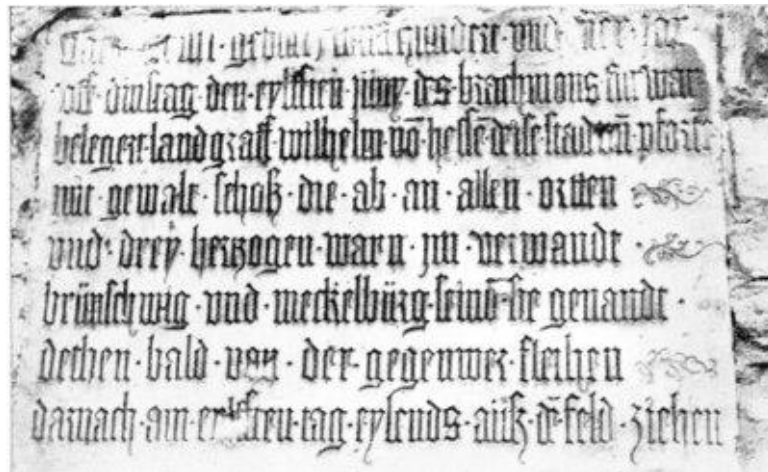 funffhundere · vnd · vier · Jar
vff · dinstag · den · eylfften · Juny · des · brachmons · fur war
belegert · landgraff · wilhelm · vō · hessē · dise · stad · pfortē
mit · gewalt · schoß · die · ab · an · allen · ortten
vnd · drey · hertzogen · warn · jm · verwandt ·
brünschwig · vnd · meckelbürg · seind · sie genandt ·
dethen · bald · von · der · gegenwer · fleihen
darnach · am · tag · eylends · auß · dē · feld · ziehen